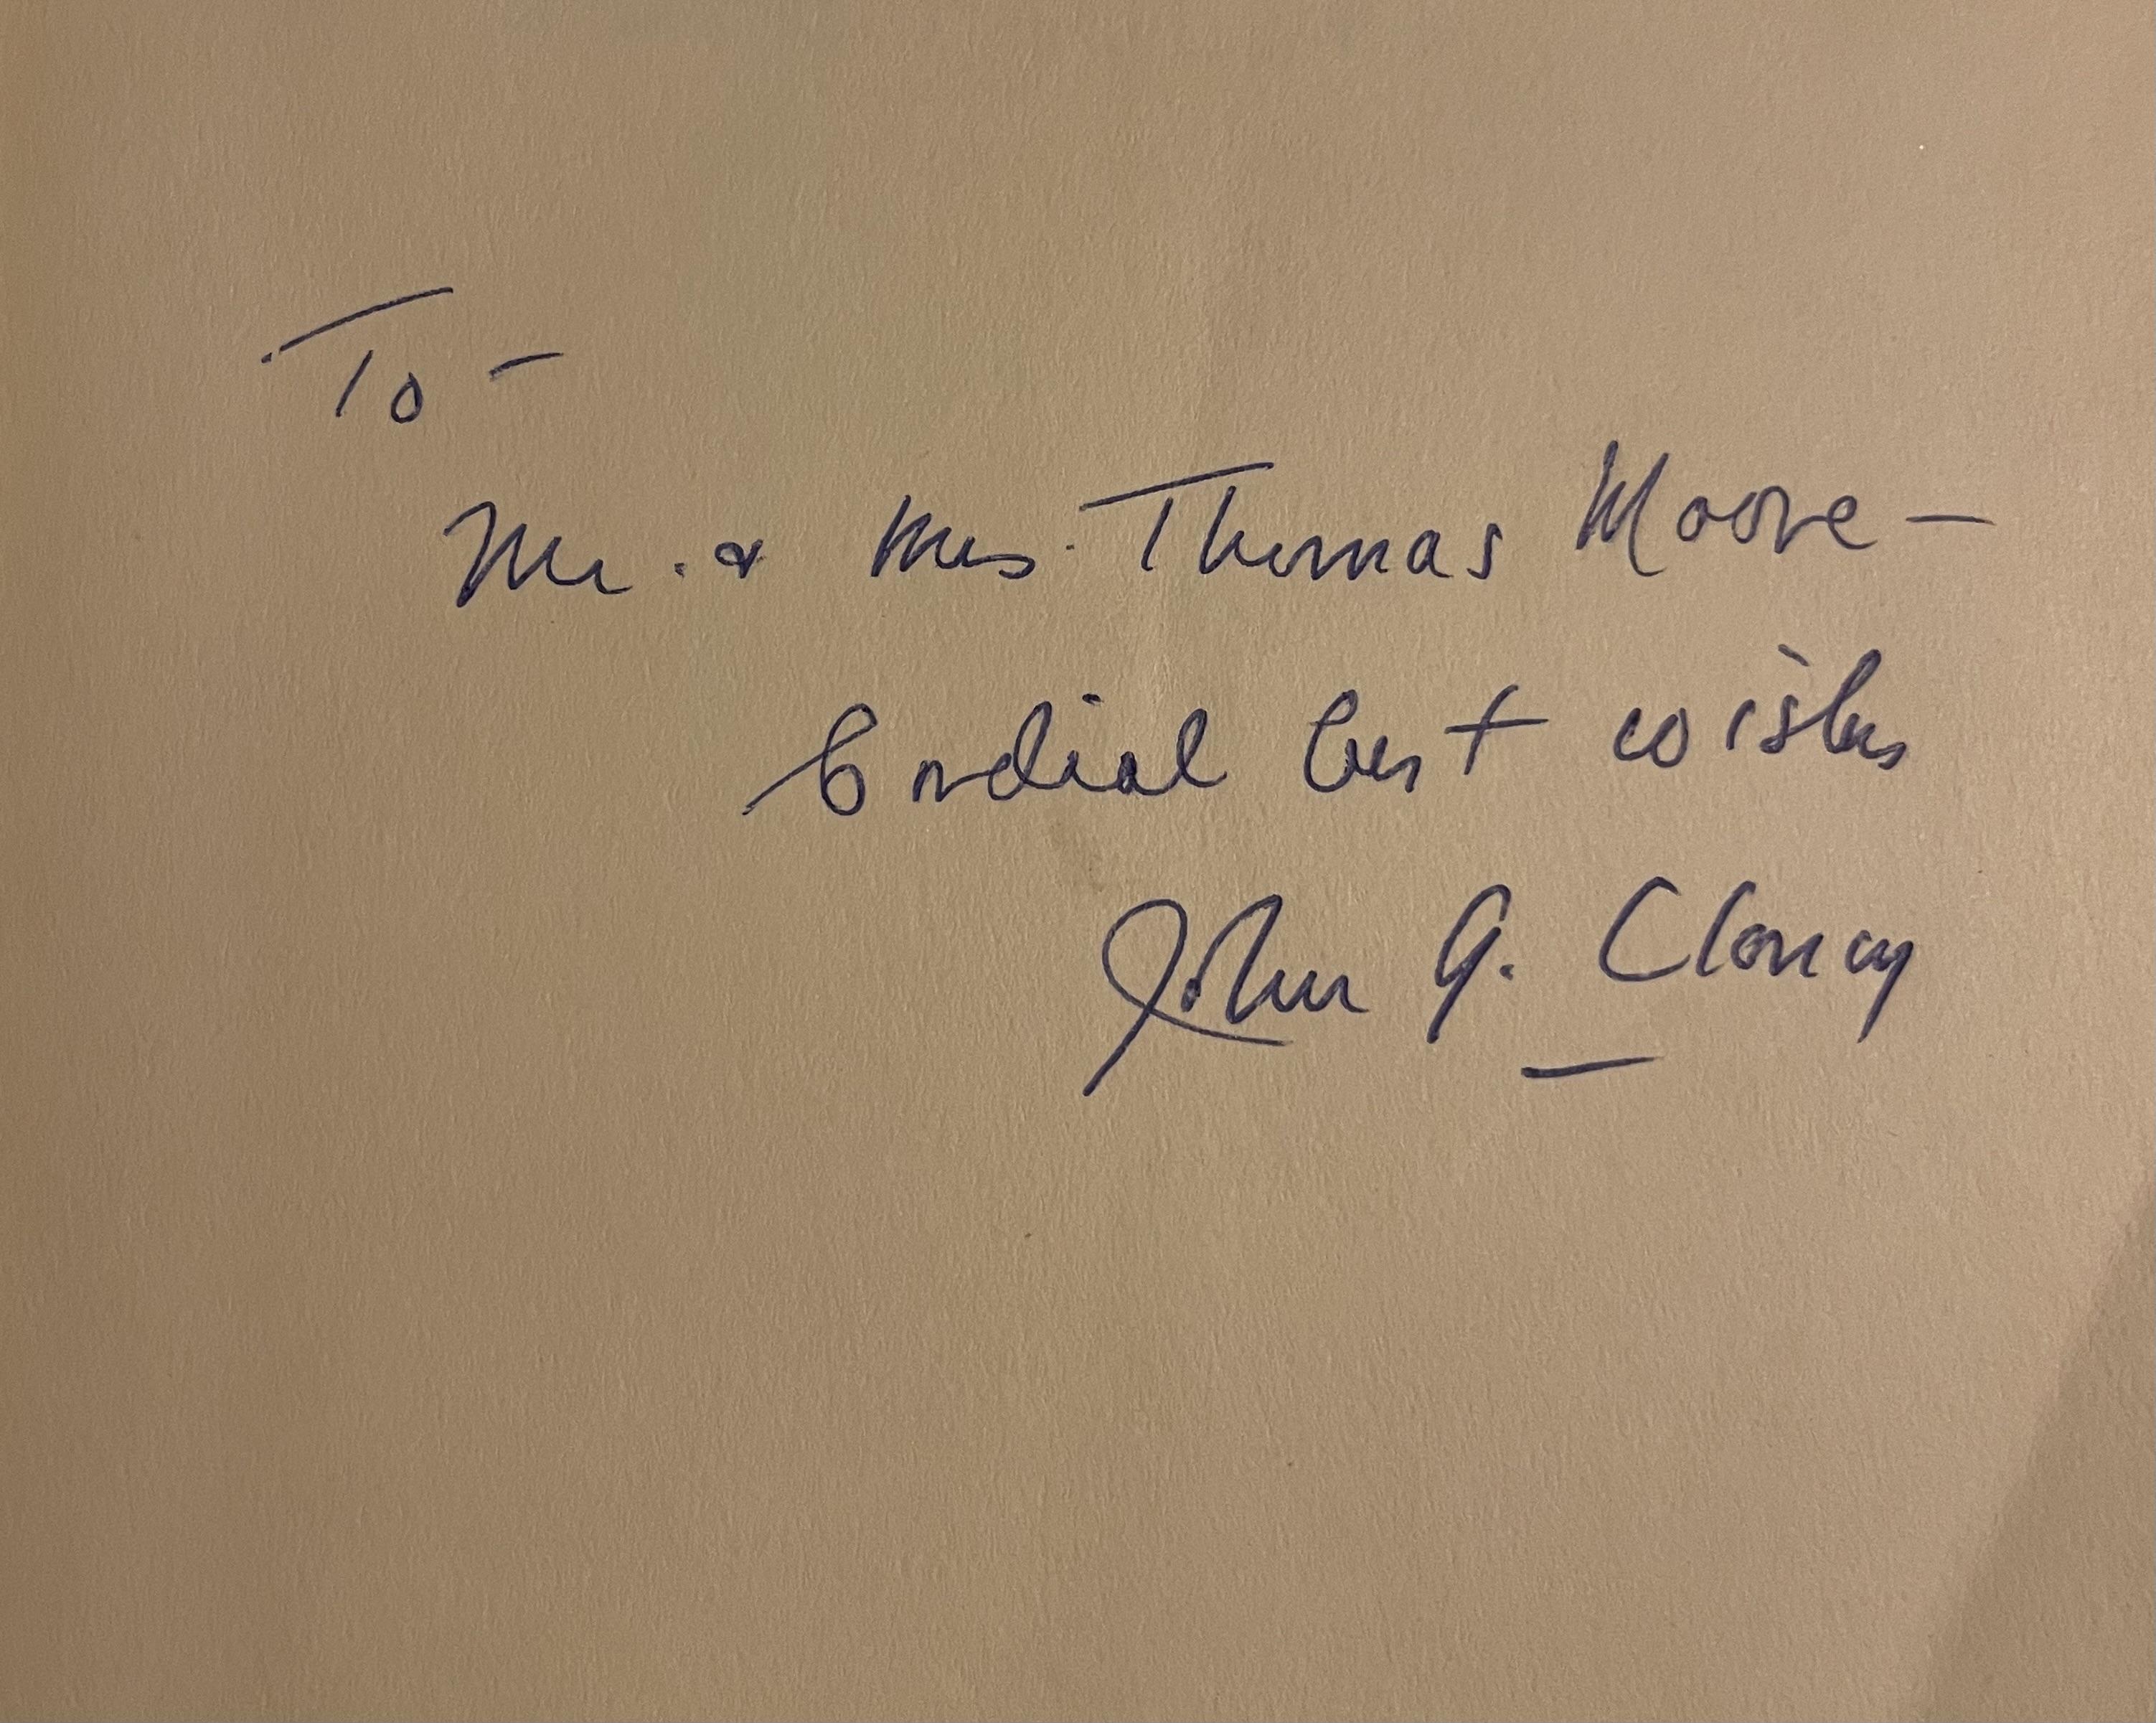 To -
Mr. & Mrs. Thomas Moore -
Cordial best wishes
John G. Clancy